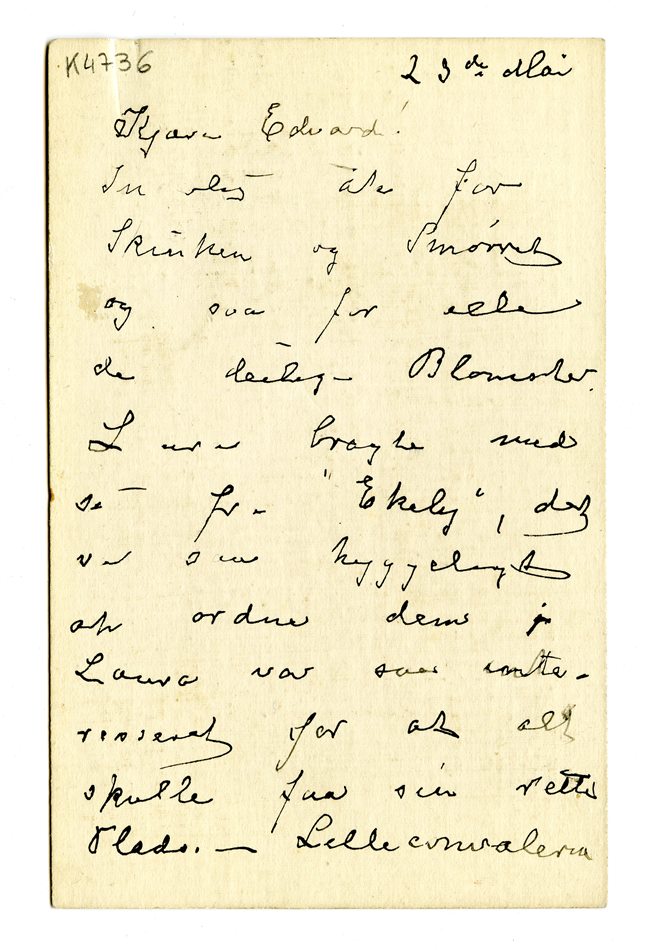 K4736
23de Mai
Kjære Edvard!
Tusen for
Skinken og Smørret
og saa for alle
de deilige Blomster
Laura bragte med
sig fra "Ekely", det
var saa hyggeligt
at ordne dem
Laura var saa inte-
resseret for at alt
skulle faa sin rette
Plads. — Lilleconvalerne